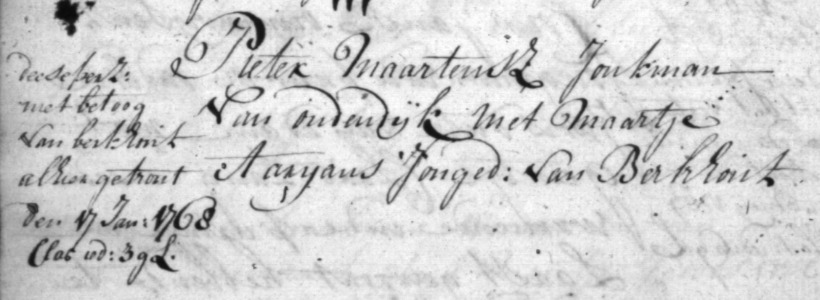 Pieter Maartensz Jonkman
van oudendijk met Maartje
Aaryans Jonged: van Berkhout
dese pers:
met betoog
van berkhout
alhier getrout
den 17 Jan: 1768